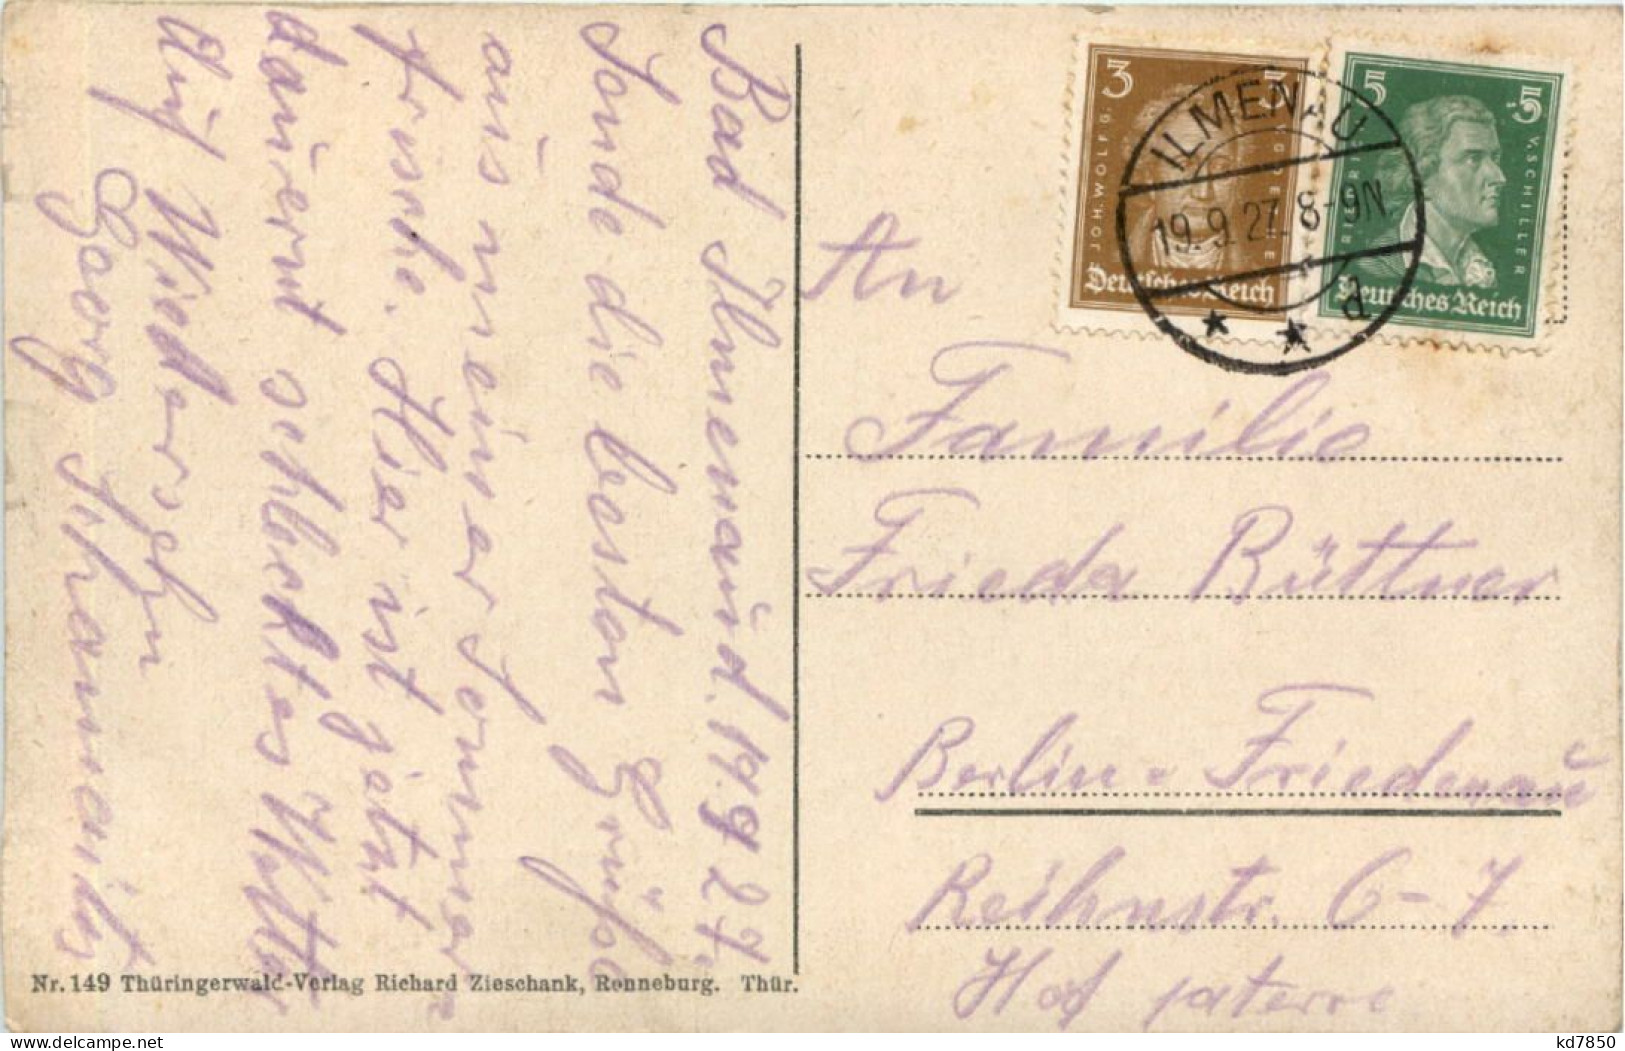 Bad Ilmenau, d. 19.9.27.
Sende die besten Grüße
aus meiner Sommer
frische. Hier ist jetzt
dauernt schlechtes Wetter
Auf Wiedersehn
Georg
An
Familie
Frieda Büttner
Berlin-Friedenau
Reihnstr. 6-7.
Hof paterre
3 3
JOH. WOLFG. V. GOETHE
Deutsches Reich
5 5
FRIEDRICH V. SCHILLER
Deutsches Reich
ILMENAU
19.9.27. 8-9N.
d
Nr. 149 Thüringerwald-Verlag Richard Zieschank, Ronneburg. Thür.
kd7850